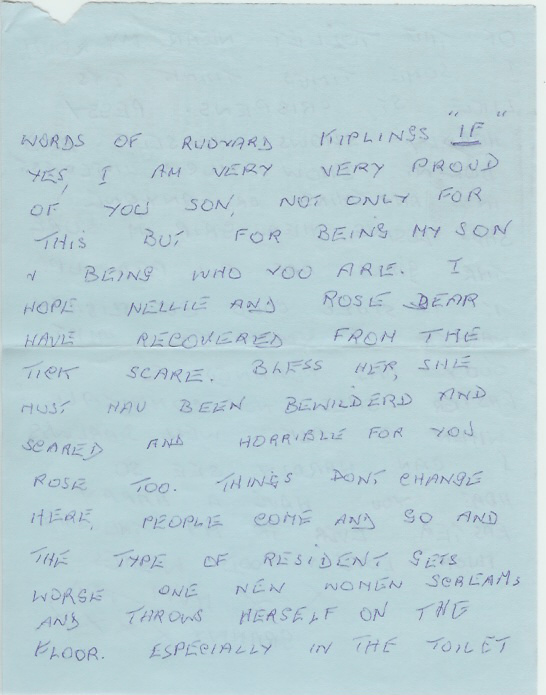 WORDS OF RUDYARD KIPLINGS "IF"
YES, I AM VERY VERY PROUD
OF YOU SON, NOT ONLY FOR
THIS BUT FOR BEING MY SON
& BEING WHO YOU ARE. I
HOPE NELLIE AND ROSE DEAR
HAVE RECOVERED FROM THE
TICK SCARE. BLESS HER, SHE
MUST HAV BEEN BEWILDERD AND
SCARED AND HORRIBLE FOR YOU
ROSE TOO. THINGS DONT CHANGE
HERE, PEOPLE COME AND GO AND
THE TYPE OF RESIDENT GETS
WORSE ONE NEW WOMEN SCREAMS
AND THROWS HERSELF ON THE
FLOOR. ESPECIALLY IN THE TOILET